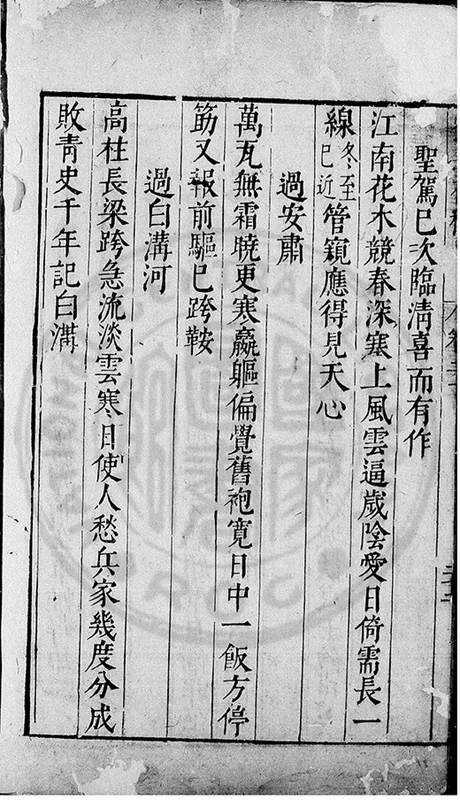 聖駕已次臨清喜而有作
江南花木競春深塞上風雲逼歲陰愛日倚需長一
線冬至已近管窺應得見天心
過安肅
萬瓦無霜曉更寒羸軀偏覺舊袍寬日中一飯方停
筯又報前驅已跨鞍
過白溝河
高柱長梁跨急流淡雲寒日使人愁兵家幾度分成
敗青史千年記白溝